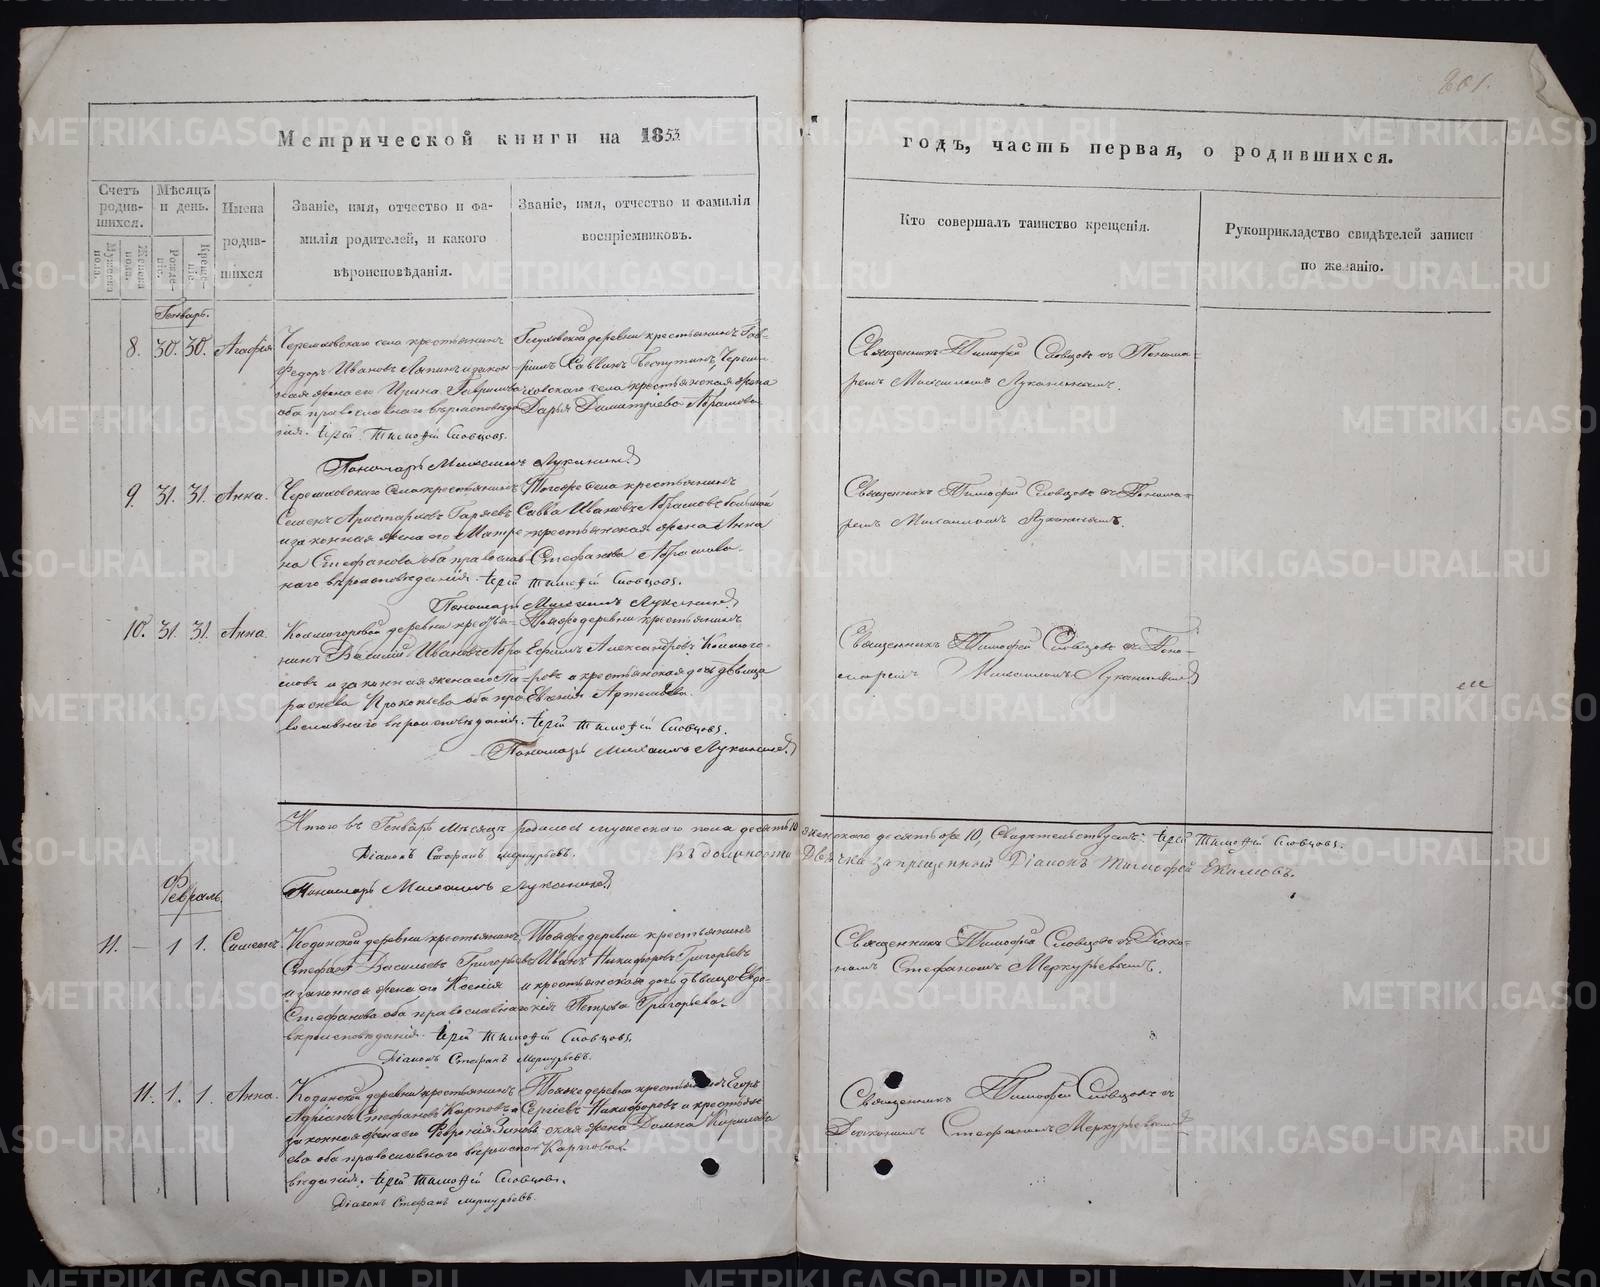 201.
Метрической книги на 1853
годъ, часть первая, о родившихся.
Счетъ родив-шихся.
Мужеска пола.
Женска пола.
Мѣсяцъ и день.
Рожде-нiе.
Креще-нiе.
Имена родив-шихся
Званiе, имя, отчество и фа-
милiя родителей, и какого
вѣроисповѣданiя.
Званiе, имя, отчество и фамилiя
воспрiемниковъ.
Кто совершалъ таинство крещенiя.
Рукоприкладство свидѣтелей записи
по желанiю.
Генварь.
8. 30. 30. Агафiя
Черемховскаго села крестьянинъ
Федоръ Ивановъ Ляпинъ и закон-
ная жена его Ирина Гаврилова
оба православнаго вѣроисповѣда-
нiя. Iерей Тимофей Словцовъ.
Пономарь Михаилъ Луканинъ
деревни крестьянинъ Гав-
рiилъ Саввинъ Черем-
ховскаго села крестьянская жена
Дарья Димитрiева Абрамова
Священникъ Тимофей Словцовъ съ Понома-
ремъ Михаиломъ Луканинымъ.
9. 31. 31. Анна.
Черемховскаго села крестьянинъ
Семенъ Аристарховъ Гаряевъ
и законная жена его Матре-
на Стефанова оба православ-
наго вѣроисповѣданiя. Iерей Тимофей Словцовъ.
Пономарь Михаилъ Луканинъ
Тогоже села крестьянинъ
Савва Ивановъ Абрамовъ
крестьянская жена Анна
Стефанова Абрамова.
Священникъ Тимофей Словцовъ съ Понома-
ремъ Михаиломъ Луканинымъ.
10. 31. 31. Анна.
деревни крестья-
нинъ Василiй Ивановъ Абра-
мовъ и законная жена его Па-
раскева Прокопьева оба пра-
вославнаго вѣроисповѣданiя. Iерей Тимофей Словцовъ.
Пономарь Михаилъ Луканинъ
Тойже деревни крестьянинъ
Ефимъ Александровъ
и крестьянская дочь дѣвица
Евгенiя Артемьева.
Священникъ Тимофей Словцовъ съ Поно-
маремъ Михаиломъ Луканинымъ
Итого въ Генварѣ мѣсяцѣ родилось мужескаго пола десять 10, женскаго десять же 10, Свидѣтельствуемъ: Iерей Тимофей Словцовъ.
Дiаконъ Стефанъ Меркурьевъ. Въ должности Дьячка запрещенный Дiаконъ Тимофей Екимовъ.
Пономарь Михаилъ Луканинъ
Февраль.
11. — 1 1. Симеонъ
Кодинской деревни крестьянинъ
Стефанъ Васильевъ Григорьевъ
и законная жена его Ксенiя
Стефанова оба православнаго
вѣроисповѣданiя. Iерей Тимофей Словцовъ.
Дiаконъ Стефанъ Меркурьевъ.
Тойже деревни крестьянинъ
Иванъ Никифоровъ Григорьевъ
и крестьянская дочь дѣвица Евдо-
кiя Петрова Григорьева.
Священникъ Тимофей Словцовъ съ Дiако-
номъ Стефаномъ Меркурьевымъ.
11. 1. 1. Анна.
Кодинской деревни крестьянинъ
Адрiанъ Стефановъ Карповъ и
законная жена его Февронiя Зиновь-
ева оба православнаго вѣроиспо-
вѣданiя. Iерей Тимофей Словцовъ.
Дiаконъ Стефанъ Меркурьевъ.
Тойже деревни крестьянинъ Егоръ
Сергiевъ Никифоровъ и крестьян-
ская жена Домна Кирилова
Карпова.
Священникъ Тимофей Словцовъ съ
Дiакономъ Стефаномъ Меркурьевымъ